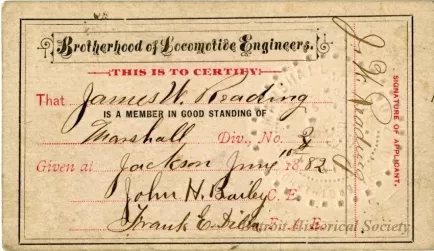 Brotherhood of Locomotive Engineers.
THIS IS TO CERTIFY
That James W. Reading
IS A MEMBER IN GOOD STANDING OF
Marshall Div., No.
Given at Jackson June 10 1882
John H. Bailey C. E.
Frank E. F. E.
Js W. Reading
SIGNATURE OF APPLICANT.
Detroit Historical Society